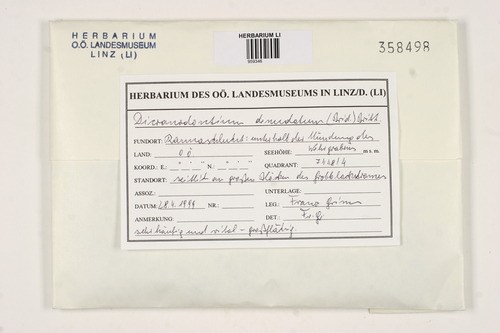 HERBARIUM
O.Ö. LANDESMUSEUM
LINZ (LI)
HERBARIUM LI
358498
HERBARIUM DES OÖ. LANDESMUSEUMS IN LINZ/D. (LI)
Dicranodontium denudatum (Brid.) Britt.
FUNDORT: Rannaschlucht: unterhalb der Mündung des
LAND: OÖ SEEHÖHE: m s.m.
KOORD.: E.: ° ' " N.: ° ' " QUADRANT: 7448/4
STANDORT: seitlich an großen Blöcken des
ASSOZ.: UNTERLAGE:
DATUM: 28.4.1999 NR.: LEG.: Franz Grims
ANMERKUNG: DET.: Fr. G
sehr häufig und vital - großflächig.